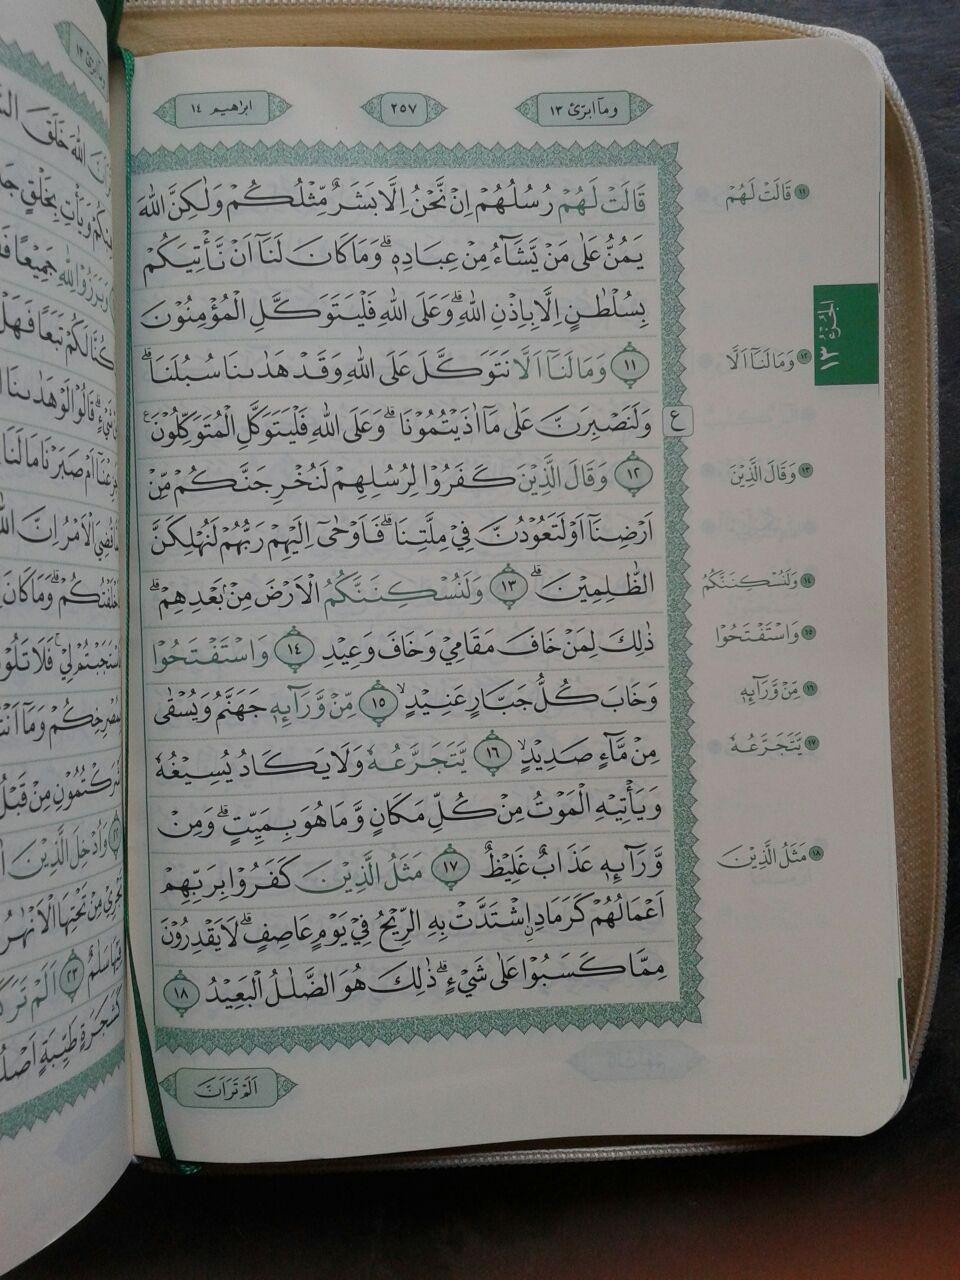 وما ابرئ ١٣
٢٥٧
ابراهيم ١٤
قَالَتْ لَهُمْ رُسُلُهُمْ اِنْ نَّحْنُ اِلَّا بَشَرٌ مِّثْلُكُمْ وَلٰكِنَّ اللّٰهَ
يَمُنُّ عَلٰى مَنْ يَّشَاۤءُ مِنْ عِبَادِهٖۗ وَمَا كَانَ لَنَآ اَنْ نَّأْتِيَكُمْ
بِسُلْطٰنٍ اِلَّا بِاِذْنِ اللّٰهِۗ وَعَلَى اللّٰهِ فَلْيَتَوَكَّلِ الْمُؤْمِنُوْنَ
١١ وَمَا لَنَآ اَلَّا نَتَوَكَّلَ عَلَى اللّٰهِ وَقَدْ هَدٰىنَا سُبُلَنَاۗ
وَلَنَصْبِرَنَّ عَلٰى مَآ اٰذَيْتُمُوْنَاۗ وَعَلَى اللّٰهِ فَلْيَتَوَكَّلِ الْمُتَوَكِّلُوْنَ ࣖ
١٢ وَقَالَ الَّذِيْنَ كَفَرُوْا لِرُسُلِهِمْ لَنُخْرِجَنَّكُمْ مِّنْ
اَرْضِنَآ اَوْ لَتَعُوْدُنَّ فِيْ مِلَّتِنَاۗ فَاَوْحٰٓى اِلَيْهِمْ رَبُّهُمْ لَنُهْلِكَنَّ
الظّٰلِمِيْنَۗ ١٣ وَلَنُسْكِنَنَّكُمُ الْاَرْضَ مِنْۢ بَعْدِهِمْۗ
ذٰلِكَ لِمَنْ خَافَ مَقَامِيْ وَخَافَ وَعِيْدِ ١٤ وَاسْتَفْتَحُوْا
وَخَابَ كُلُّ جَبَّارٍ عَنِيْدٍۙ ١٥ مِّنْ وَّرَاۤىِٕهٖ جَهَنَّمُ وَيُسْقٰى
مِنْ مَّاۤءٍ صَدِيْدٍۙ ١٦ يَّتَجَرَّعُهٗ وَلَا يَكَادُ يُسِيْغُهٗ
وَيَأْتِيْهِ الْمَوْتُ مِنْ كُلِّ مَكَانٍ وَّمَا هُوَ بِمَيِّتٍۗ وَمِنْ
وَّرَاۤىِٕهٖ عَذَابٌ غَلِيْظٌ ١٧ مَثَلُ الَّذِيْنَ كَفَرُوْا بِرَبِّهِمْ
اَعْمَالُهُمْ كَرَمَادِ ِۨاشْتَدَّتْ بِهِ الرِّيْحُ فِيْ يَوْمٍ عَاصِفٍۗ لَا يَقْدِرُوْنَ
مِمَّا كَسَبُوْا عَلٰى شَيْءٍۗ ذٰلِكَ هُوَ الضَّلٰلُ الْبَعِيْدُ ١٨
اَلَمْ تَرَ اَنَّ
١١ قَالَتْ لَهُمْ
الجزء ١٣
١٢ وَمَا لَنَآ اَلَّا
ع
١٣ وَقَالَ الَّذِيْنَ
١٤ وَلَنُسْكِنَنَّكُمُ
١٥ وَاسْتَفْتَحُوْا
١٦ مِّنْ وَّرَاۤىِٕهٖ
١٧ يَّتَجَرَّعُهٗ
١٨ مَثَلُ الَّذِيْنَ